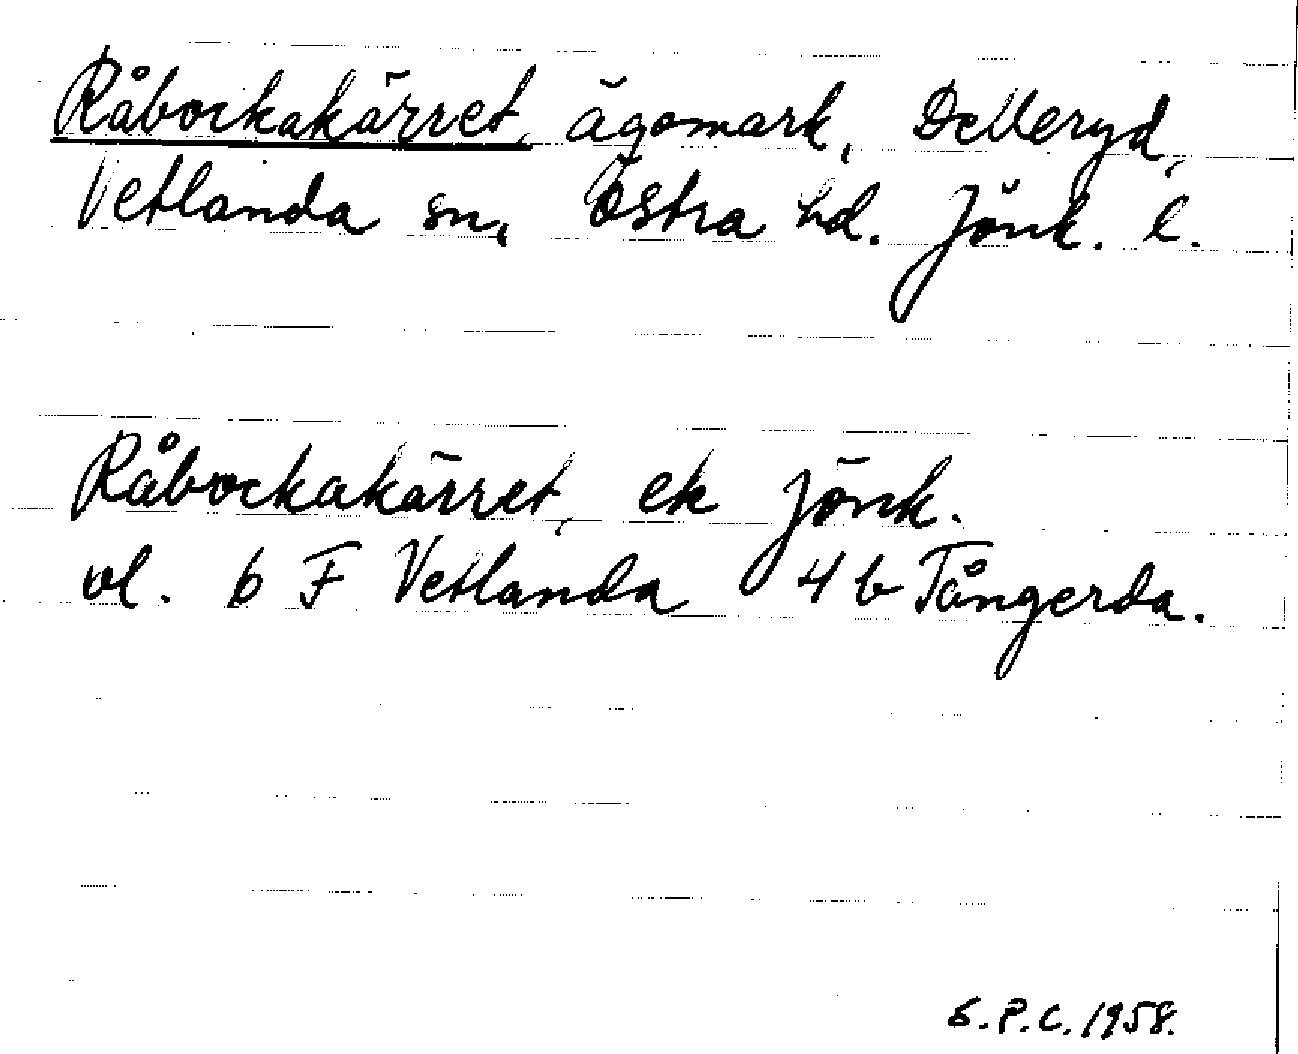 Råbockakärret, ägomark, Delleryd,
Vetlanda sn, Östra hd. Jönk. l.
Råbockakärret, ek Jönk.
vl. 6 F Vetlanda 4 b Tångerda.
S.P.C. 1958.